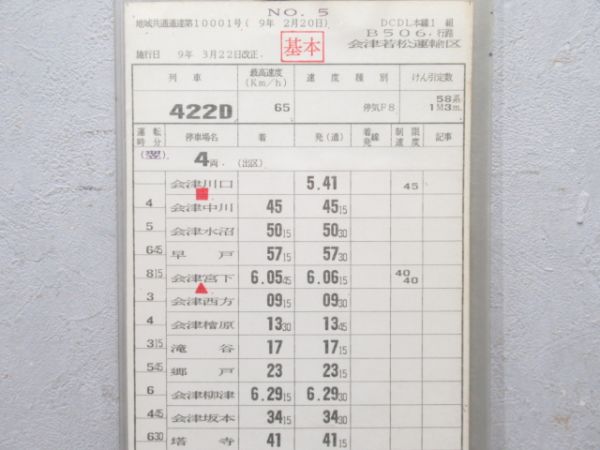 NO. 5
地域共通運達第10001号( 9年 2月20日)
DCDL本線1 組
B506.行路
基本
施行日 9年 3月22日改正.
会津若松運輸区
列 車 最高速度(Km/h) 速 度 種 別 けん引定数
422D 65 停気F8 58系 1M3m.
運転時分 停車場名 着 発(通) 着発線 制限速度 記事
(翌) 4両. (出区)
会津川口 5.41 45
4 会津中川 45 45 15
5 会津水沼 50 15 50 30
6 45 早 戸 57 15 57 30
8 15 会津宮下 6.05 45 6.06 15 40 40
3 会津西方 09 15 09 30
4 会津檜原 13 30 13 45
3 15 滝 谷 17 17 15
5 45 郷 戸 23 23 15
6 会津柳津 6.29 15 6.29 30
4 45 会津坂本 34 15 34 30
6 30 塔 寺 41 41 15